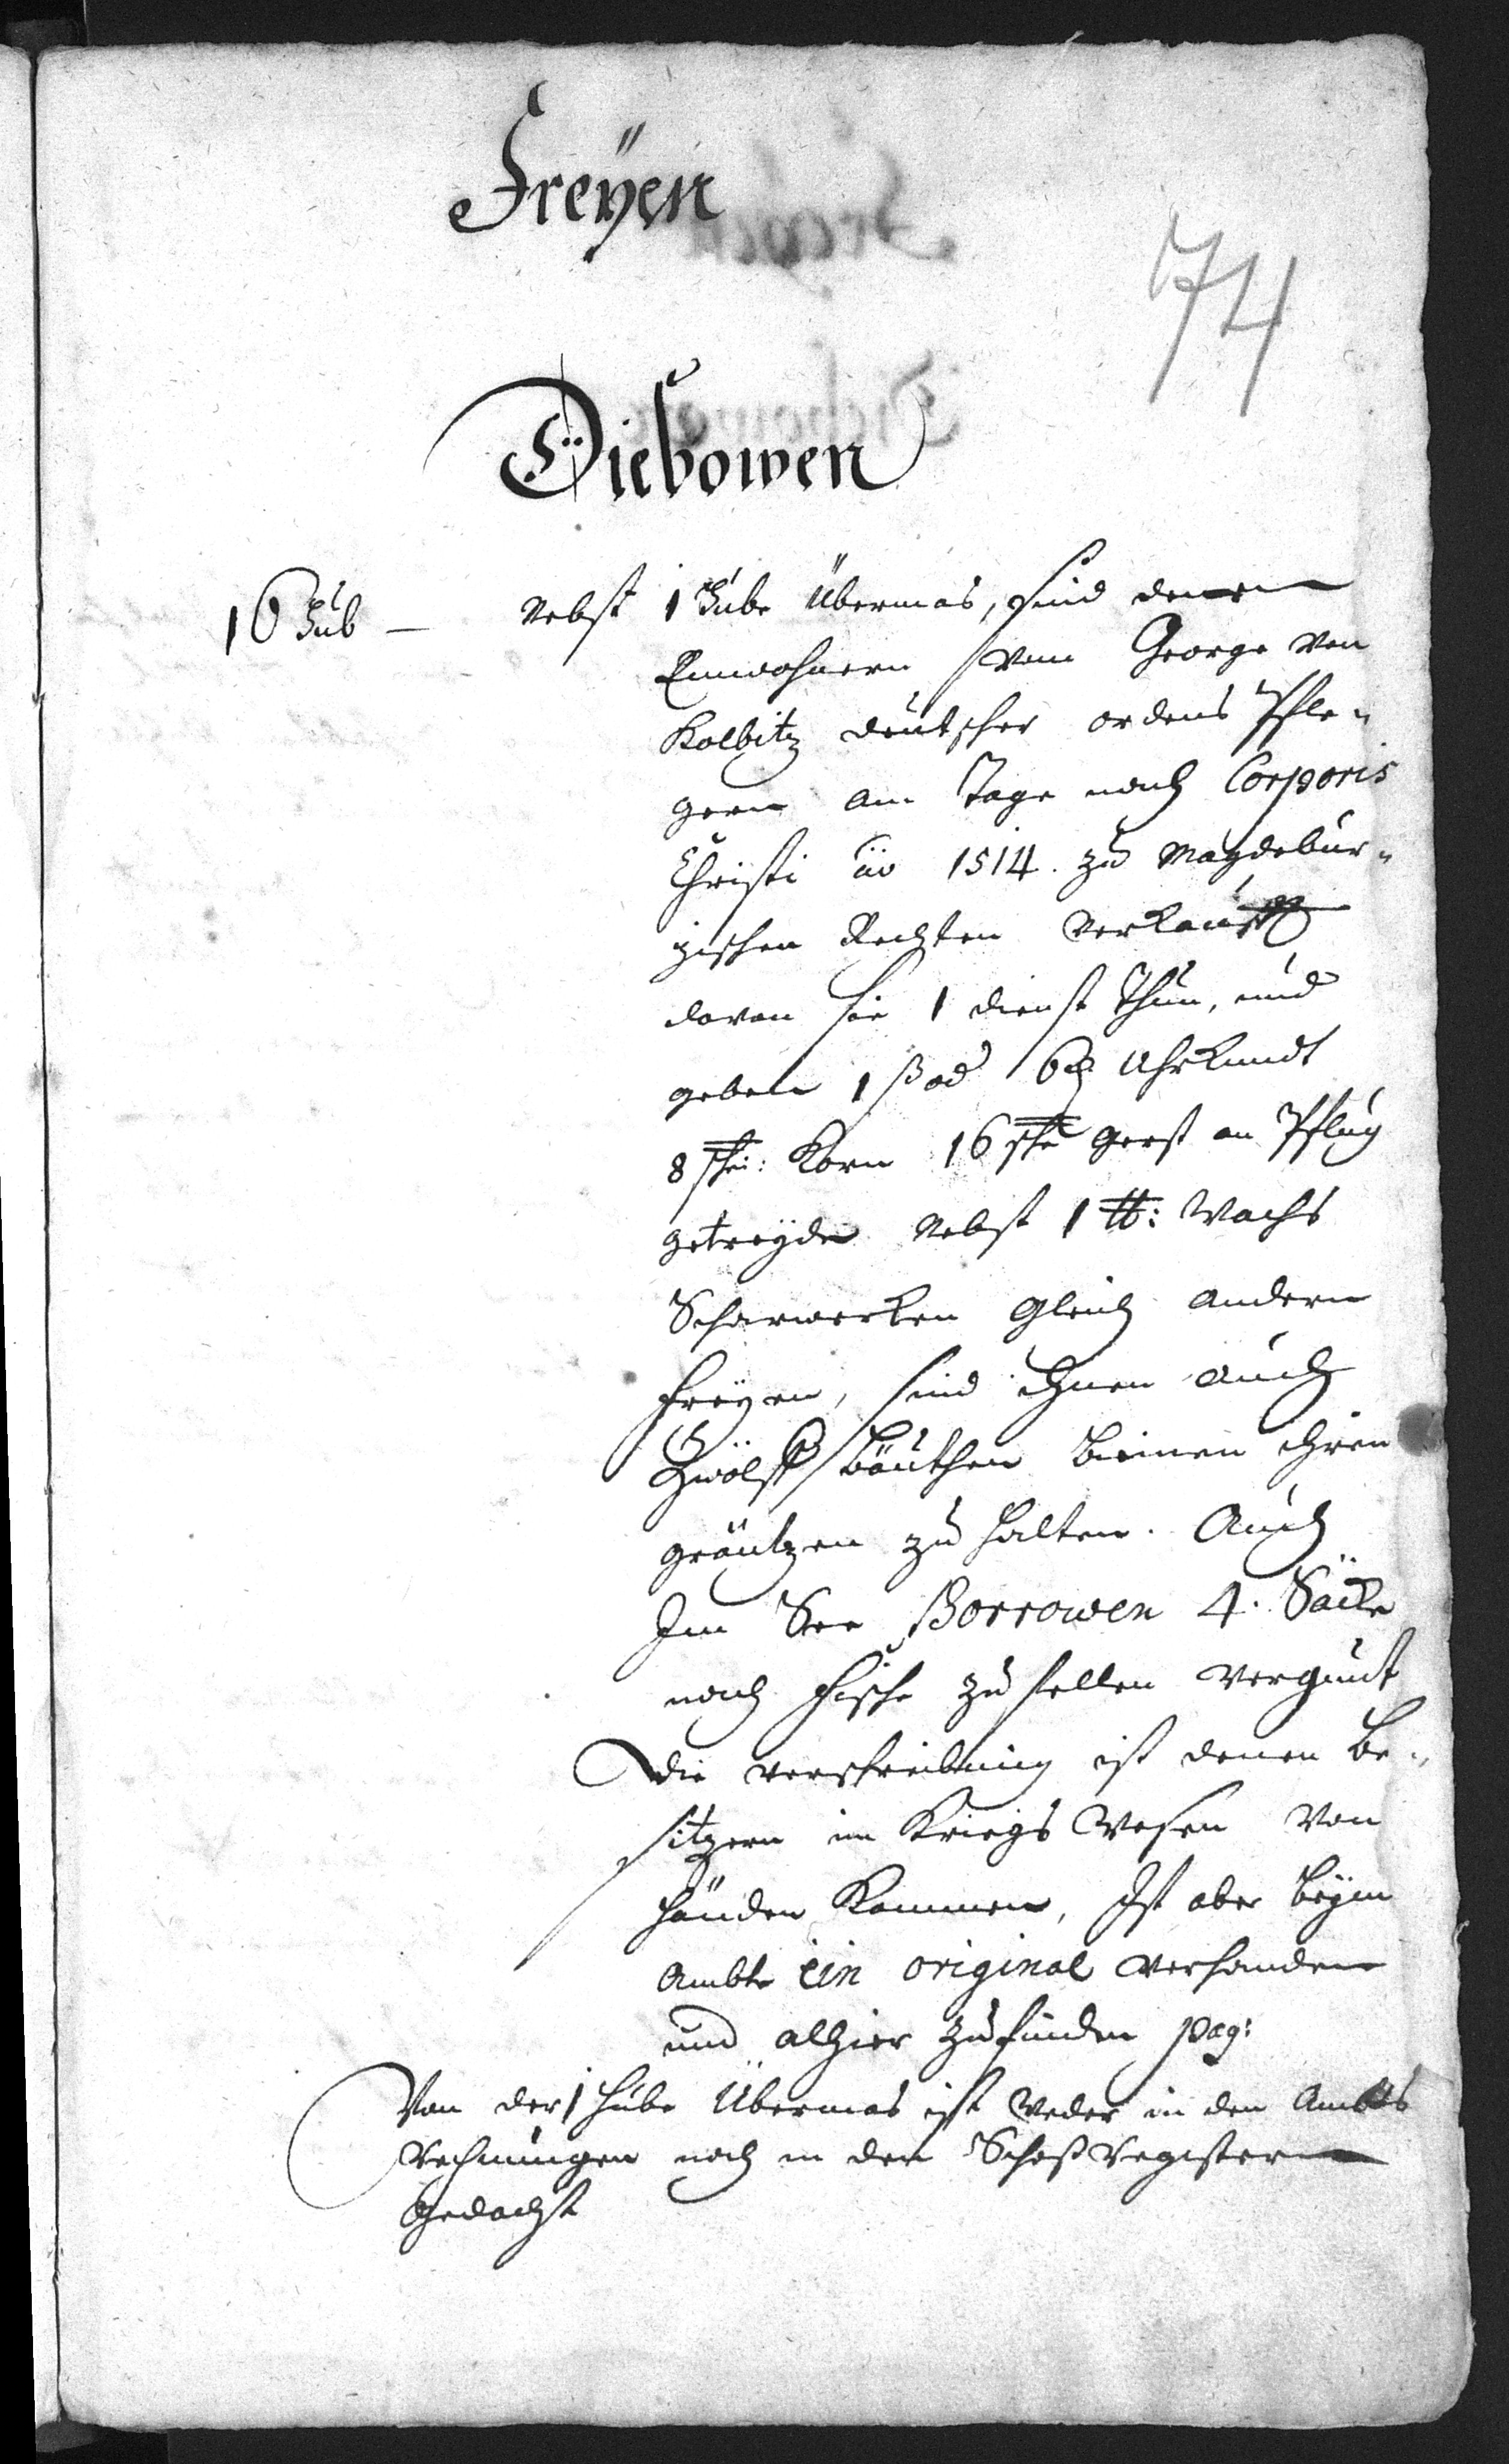 Freÿen
74
Diebowen
16 Hub — Nebst 1 Hube Übermas, sind denen
Einwohnern vom George von
Kolbitz deütscher ordens Pfle=
gern am Tage nach Corporis
Christi ao 1514. zu Magdebur=
gischen Rechten verkaufft
davon sie 1 dienst thun, und
geben 1 ß 6 ₰ Uhrkundt
8 schfl: Korn 16 schfl gerst an Pflug
getreyde nebst 1 ℔: Wachs
Scharwerken gleich andern
freÿen, sind ihnen auch
Zwölff bäuthen binnen ihren
gräntzen zu halten. Auch
Im See Borrowen 4. Säcke
nach fische zu stellen vergunt
Die verschreibung ist denen be=
sitzern im Kriegs Wesen von
händen kommen, Ist aber beÿm
Ambte ein original verhanden
und alhier zu finden pag:
Von der 1 Hube Übermas ist weder in den Ambts
Rechnungen noch in den Schoß Registern
gedacht